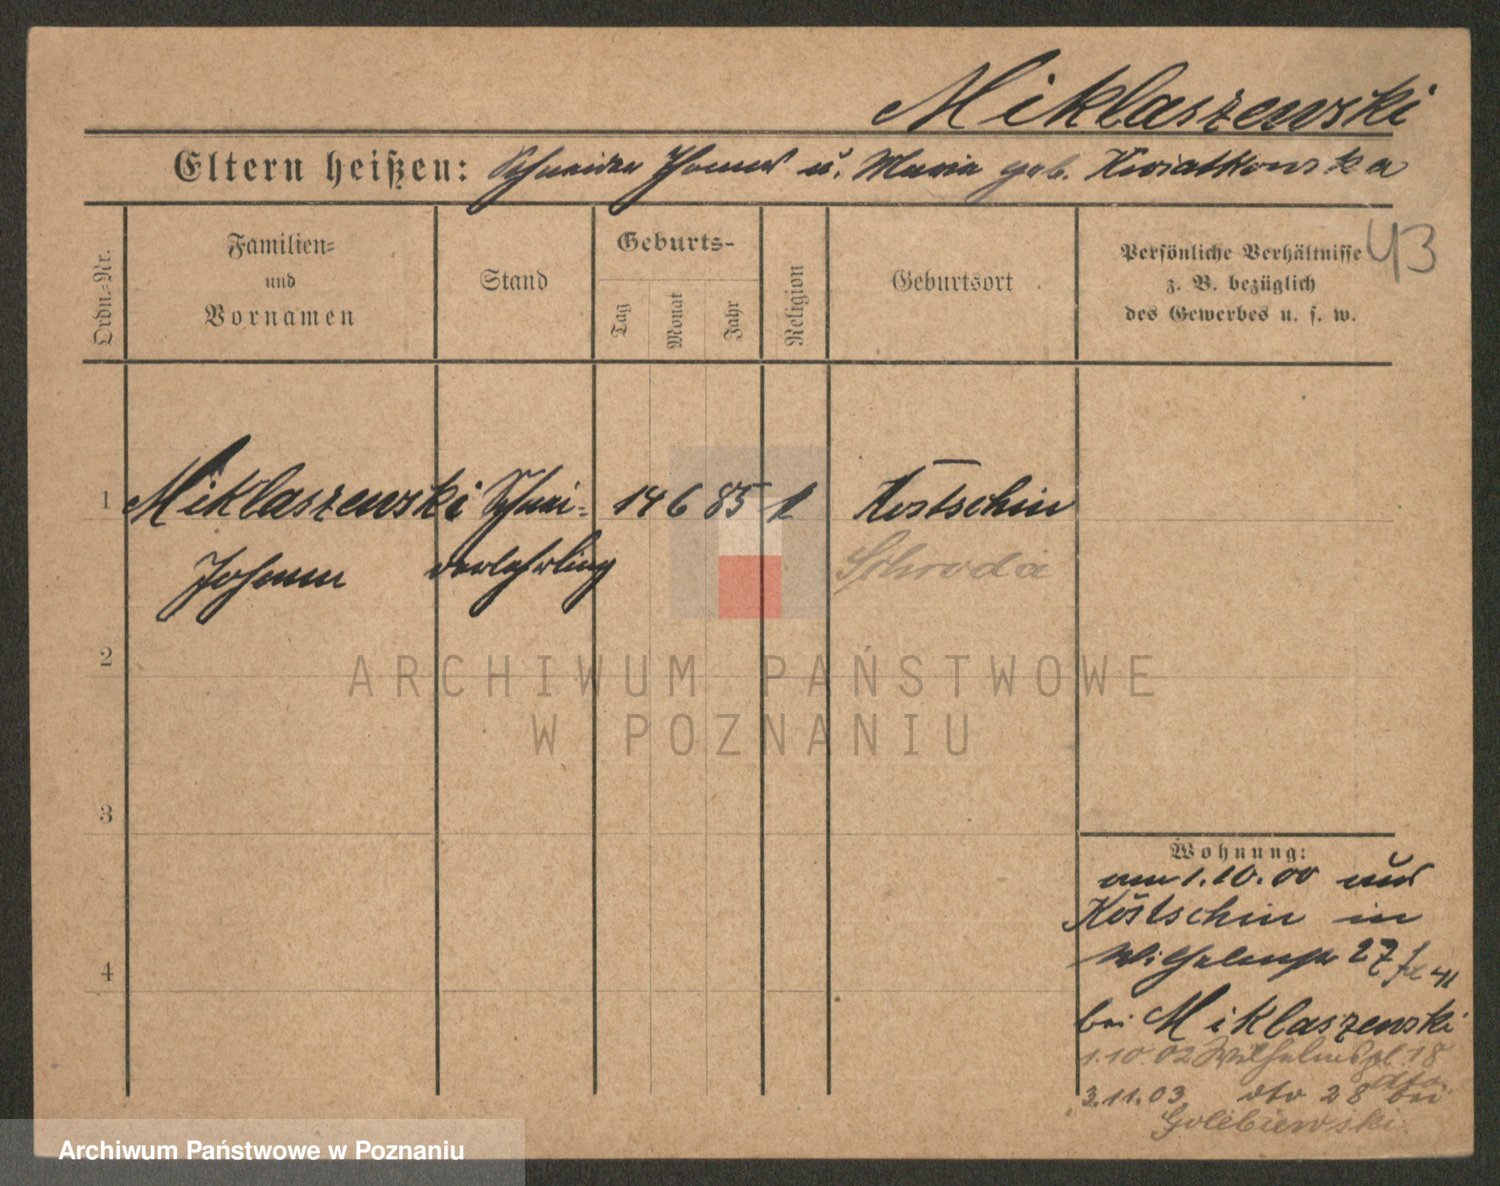 Miklaszewski
Eltern heißen: Schneider Thomas u. Maria geb. Kwiatkowska
43
Ordn.-Nr.
Familien-
und
Vornamen
Stand
Geburts-
Tag
Monat
Jahr
Religion
Geburtsort
Persönliche Verhältnisse
z. B. bezüglich
des Gewerbes u. s. w.
1 Miklaszewski Schnei- 14 6 85 k Kostschin
Johann derlehrling Schroda
2
ARCHIWUM PAŃSTWOWE
W POZNANIU
3
Wohnung:
am 1.10.00 aus
Kostschin in
Wilhelmspl 27
bei Miklaszewski
1.10.02 Wilhelmspl. 18
dto.
3.11.03. dto 28 bei
Golebiewski.
4
Archiwum Państwowe w Poznaniu